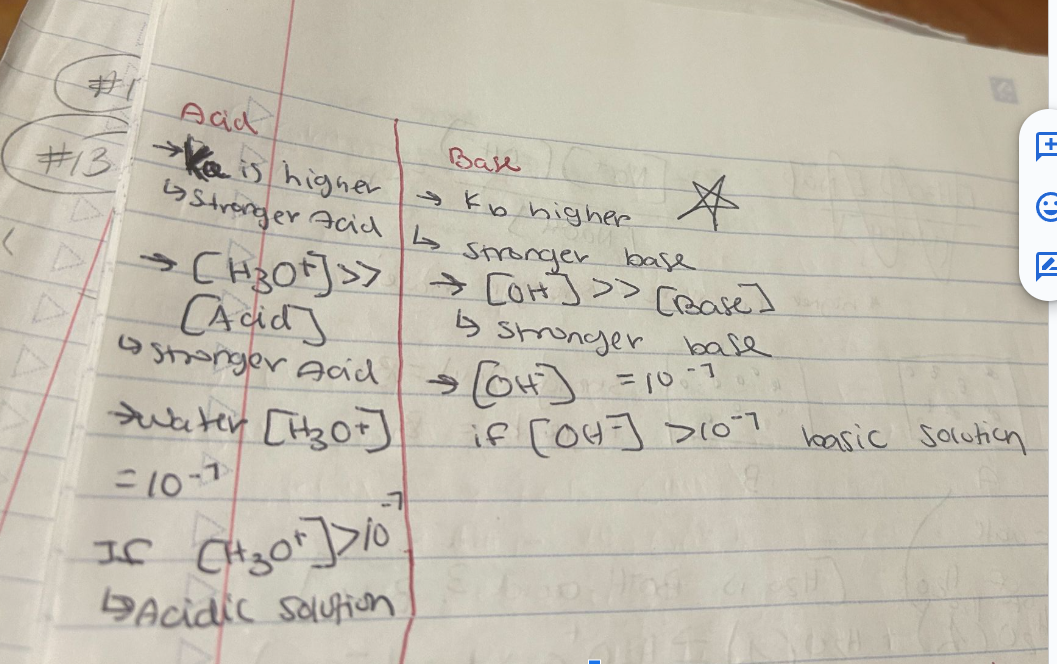 #1
#13
Acid
→Ka is higher
↳stronger Acid
→ [H3O+]>>
[Acid]
↳stronger Acid
→water [H3O+]
= 10⁻⁷
If [H3O+]>10⁻⁷
↳Acidic solution
Base
→ Kb higher
↳ stronger base
→ [OH⁻] >> [Base]
↳ stronger base
→ [OH⁻] = 10⁻⁷
if [OH⁻] >10⁻⁷ basic solution